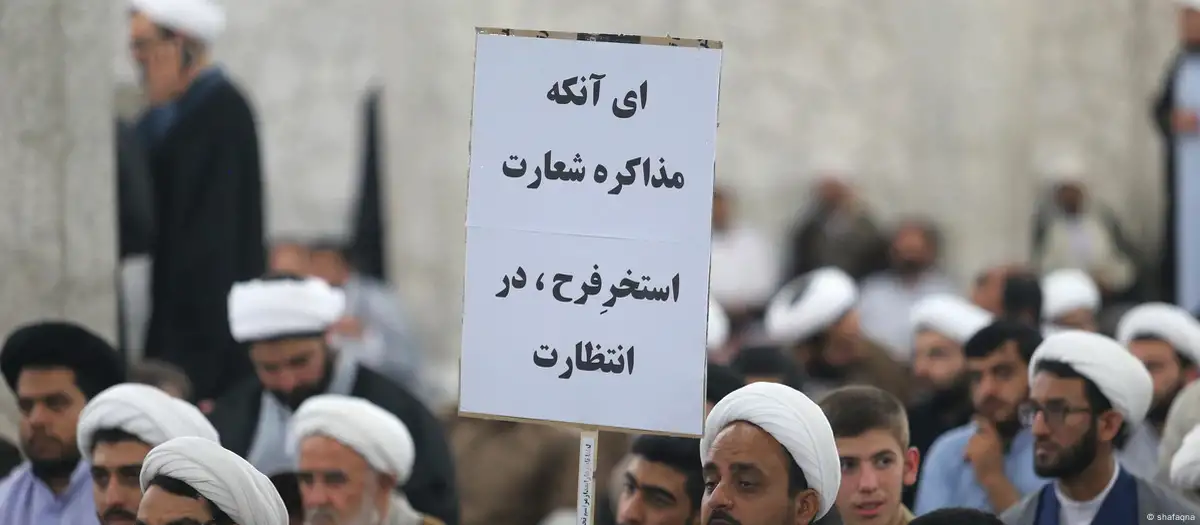 ای آنکه
مذاکره شعارت
استخرِفرح ، در
انتظارت
© shafaqna